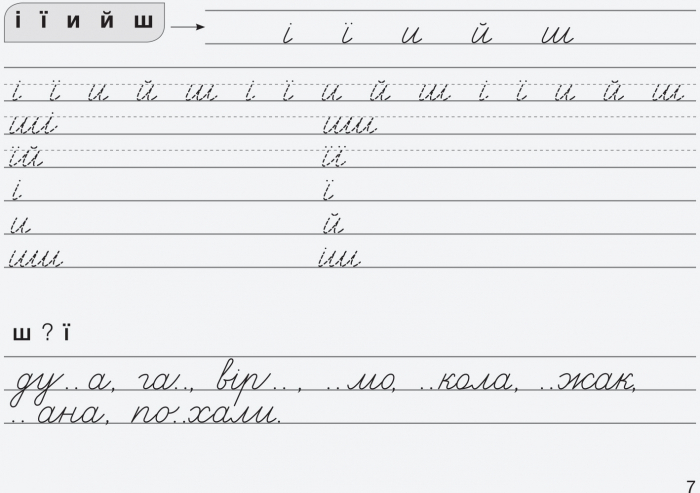 і ї и й ш і ї и й ш
і ї и й ш і ї и й ш і ї и й ш
ші ши
їй її
і ї
и й
ши іш
ш ? ї
ду..а, га.., вір.., ..мо, ..кола, ..жак,
..ана, по..хали.
7